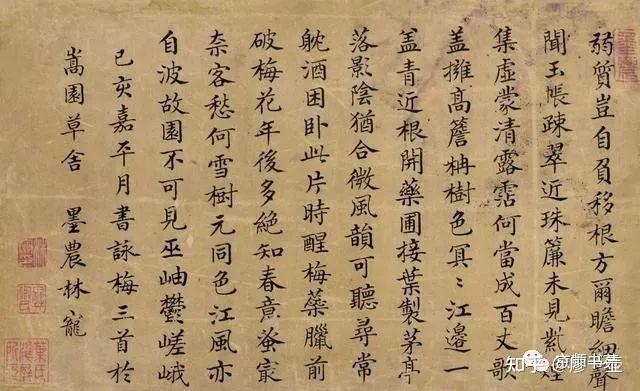 弱質豈自負移根方爾瞻細聲
聞玉帳疎翠近珠簾未見紫
集虛蒙清露霑何當成百丈欹
盖擁高簷枏樹色冥〻江邊一
盖青近根開藥圃接葉製茅亭
落影陰猶合微風韻可聽尋常
躭酒困卧此片時醒梅蘂臘前
破梅花年後多絕知春意蚤最
柰客愁何雪樹元同色江風亦
自波故園不可見巫岫鬱嵯峨
己亥嘉平月書詠梅三首於
嵩園草舍 墨農林寵
知乎